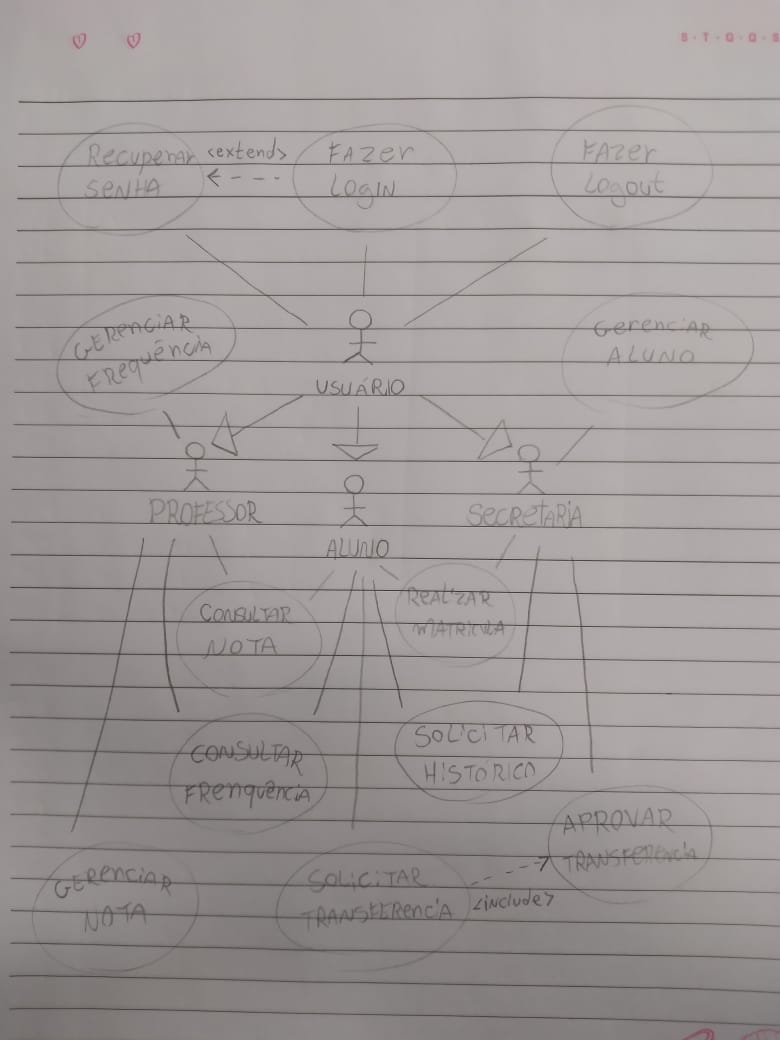 S·T·Q·Q·S
Recuperar
SENHA
<extend>
FAZer
LOGIN
FAZer
Logout
GERENCIAR
FREQUÊNCIA
Gerenciar
ALUNO
USUÁRIO
PROFESSOR
ALUNO
SECRETARIA
CONSULTAR
NOTA
REALIZAR
MATRÍCULA
CONSULTAR
FRENQUÊNCIA
SOLICITAR
HISTÓRICO
APROVAR
TRANSFERENCIA
GERENCIAR
NOTA
SOLICITAR
TRANSFERENCIA
<include>